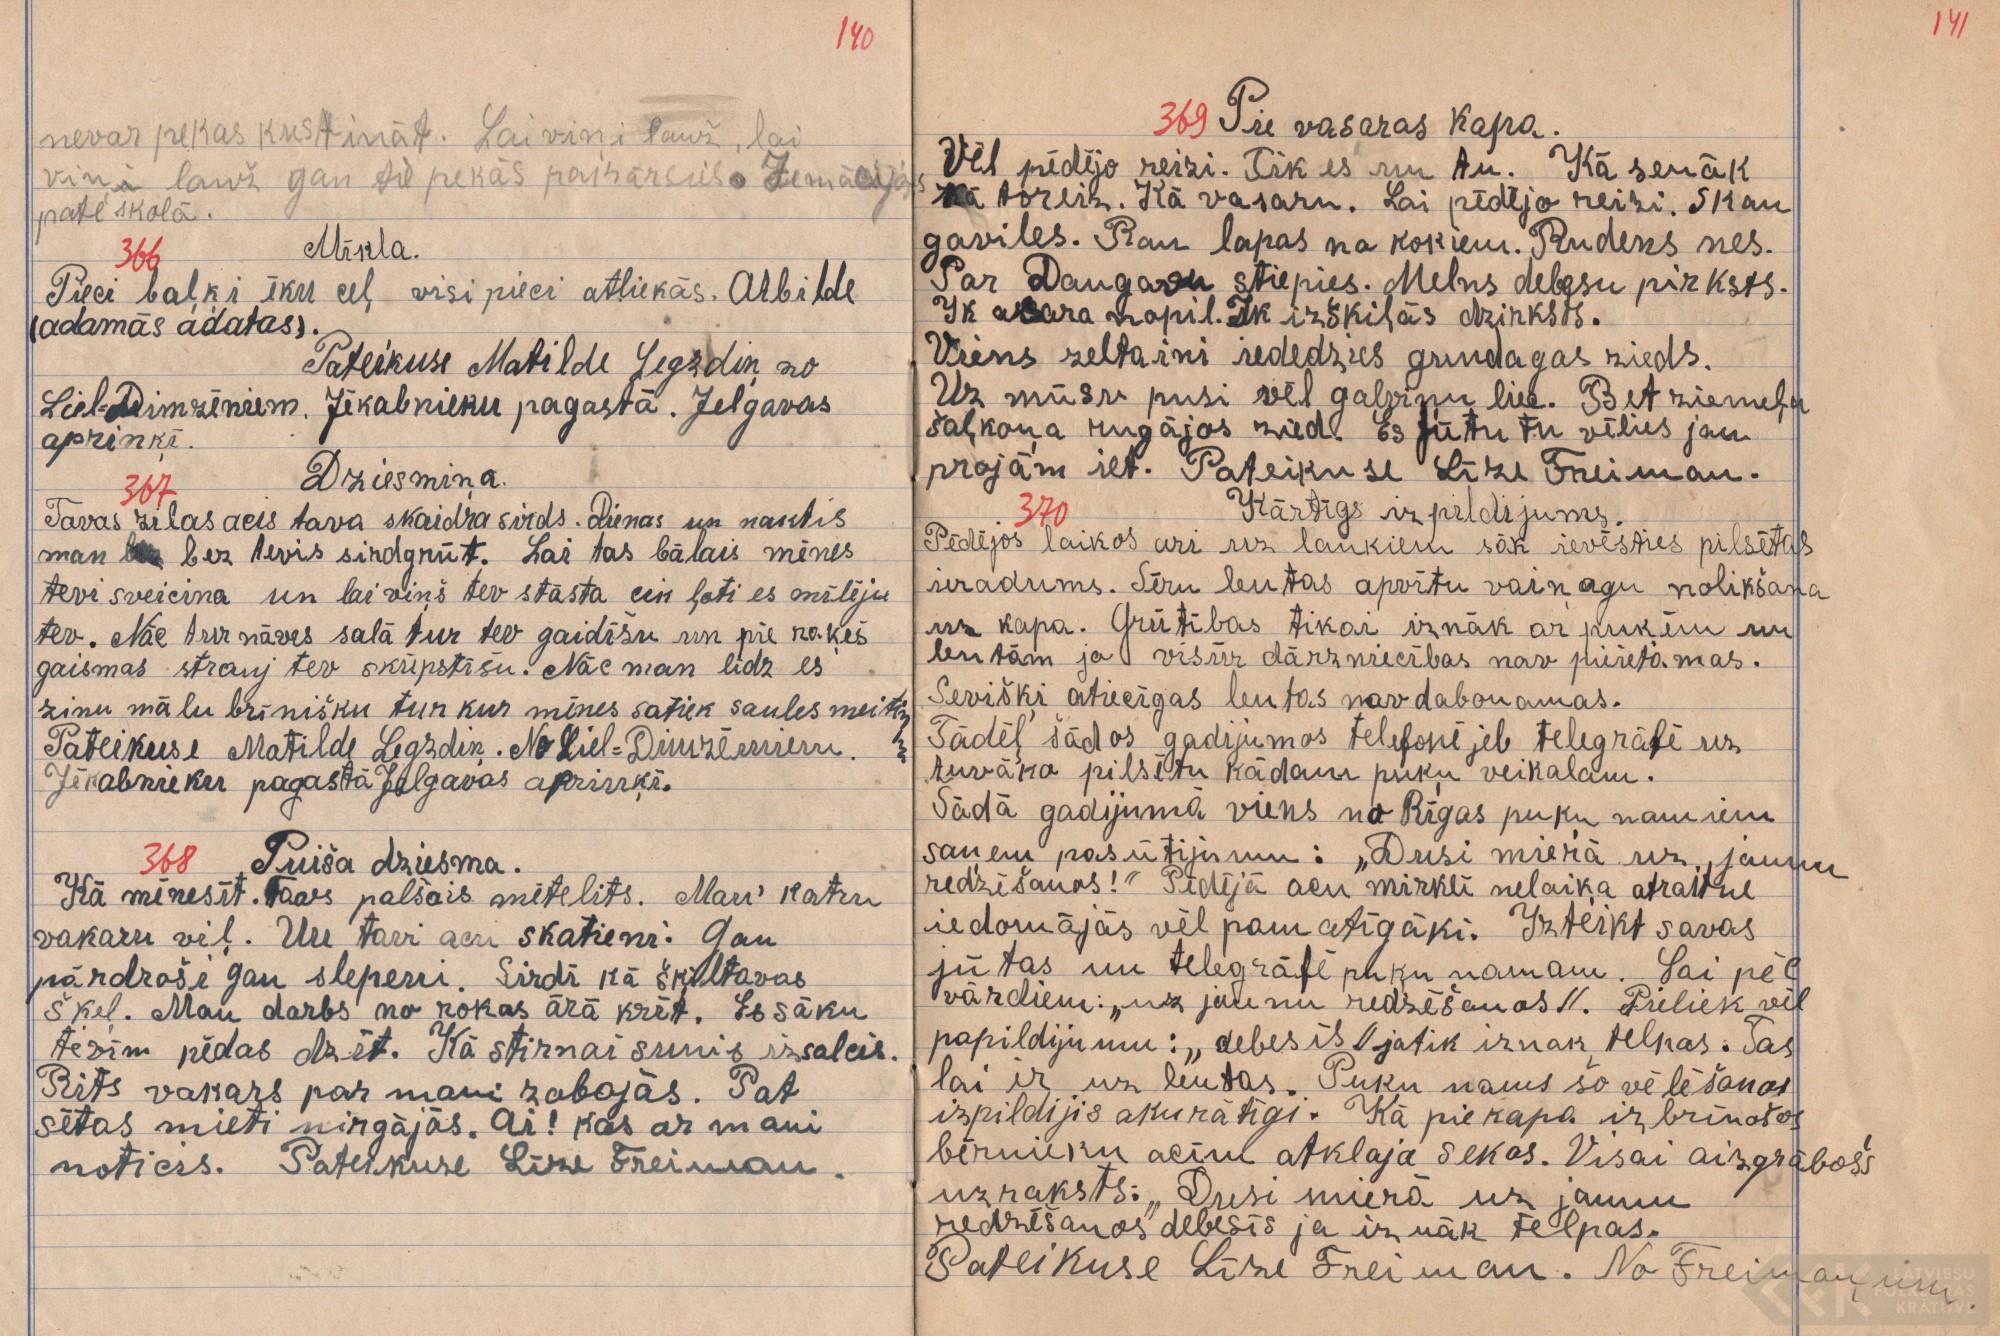 140
nevar pekas kustināt. Lai viņi lauž, lai
viņi lauž gan tie pekās pakārsies. Iemācijās
pate skolā.
366 Mīkla.
Pieci baļķi ēku ceļ visi pieci atliekās. Atbilde
(adamās adatas).
Pateikuse Matilde Legzdiņ no
Liel=Dimzēniem. Jēkabnieku pagastā. Jelgavas
apriņķī.
367 Dziesmiņa.
Tavas zilas acis tava skaidra sirds. Dienas un naktis
man bez tevis sirdgrūt. Lai tas bālais mēnes
tevi sveicina un lai viņš tev stāsta cik ļoti es mīlēju
tev. Nāc tur nāves salā tur tev gaidīšu un pie rokas
gaismas strauj tev skūpstīšu. Nāc man līdz es
zinu mālu brīnišku tur kur mēnes satiek saules meitiņ
Pateikuse Matilde Legzdiņ. No Liel=Dimzēniem.
Jēkabnieku pagastā Jelgavas apriņķī.
368 Puiša dziesma.
Kā mēnesīt. Tavs palšais mētelīts. Man' katru
vakaru viļ. Un tavi acu skatieni. Gan
pārdroši gan slepeni. Sirdī kā šķiltavas
šķeļ. Man darbs no rokas ārā krīt. Es sāku
tevīm pēdas dzīt. Kā stirnai sunis izsalcis.
Rits vakars par mani zobojās. Pat
sētas mieti ņirgājās. Ai! kas ar mani
noticis. Pateikuse Līze Freiman.
141
369 Pie vasaras kapa.
Vēl pēdējo reizi. Tik es un tu. Kā senāk
kā toreiz. Kā vasaru. Lai pēdējo reizi. Skan
gaviles. Rau lapas no kokiem. Rudens nes.
Par Daugavu stiepies. Melns debesu pirksts.
Ik asara nopil. Ik izšķiļās dzirksts.
Viens zeltaini iededzies grundagas zieds.
Uz mūsu pusi vēl galviņu liec. Bet ziemeļu
šalkoņa rugājos zied. Es jūtu tu vēlies jau
projām iet. Pateikuse Līze Freiman.
370 Kārtīgs izpildijums.
Pēdējos laikos ari uz laukiem sāk ievēsties pilsētas
iradums. Sēru lentas apvītu vaiņagu nolikšana
uz kapa. Grūtības tikai iznāk ar puķēm un
lentām ja visur dārzniecības nav pieietamas.
Seviški atiecīgas lentas nav dabonamas.
Tādēļ šādos gadijumos telefonē jeb telegrāfē uz
tuvāko pilsētu kādam puķu veikalam.
Šādā gadijumā viens no Rīgas puķu namiem
saņem pasūtijumu: „Dusi mierā uz jaunu
redzēšanos!" Pēdējā acu mirklī nelaiķa atraitne
iedomājās vēl pamatīgāki. Izteikt savas
jūtas un telegrāfē puķu namam. Lai pēc
vārdiem: „uz jaunu redzēšanos". Pieliek vēl
papildijumu: „debesīs" ja tik iznak telpas. Tas
lai ir uz lentas. Puķu nams šo vēlēšanos
izpildijis akurātīgi. Kā pie kapa izbrīnošos
bērnieku acīm atklaja sekos. Visai aizgrābošs
uzraksts: „Dusi mierā uz jaunu
redzēšanos debesīs ja iznāk telpas.
Pateikuse Līze Freiman. No Freimaņiem.
LATVIEŠU
FOLKLORAS
KRĀTUVE